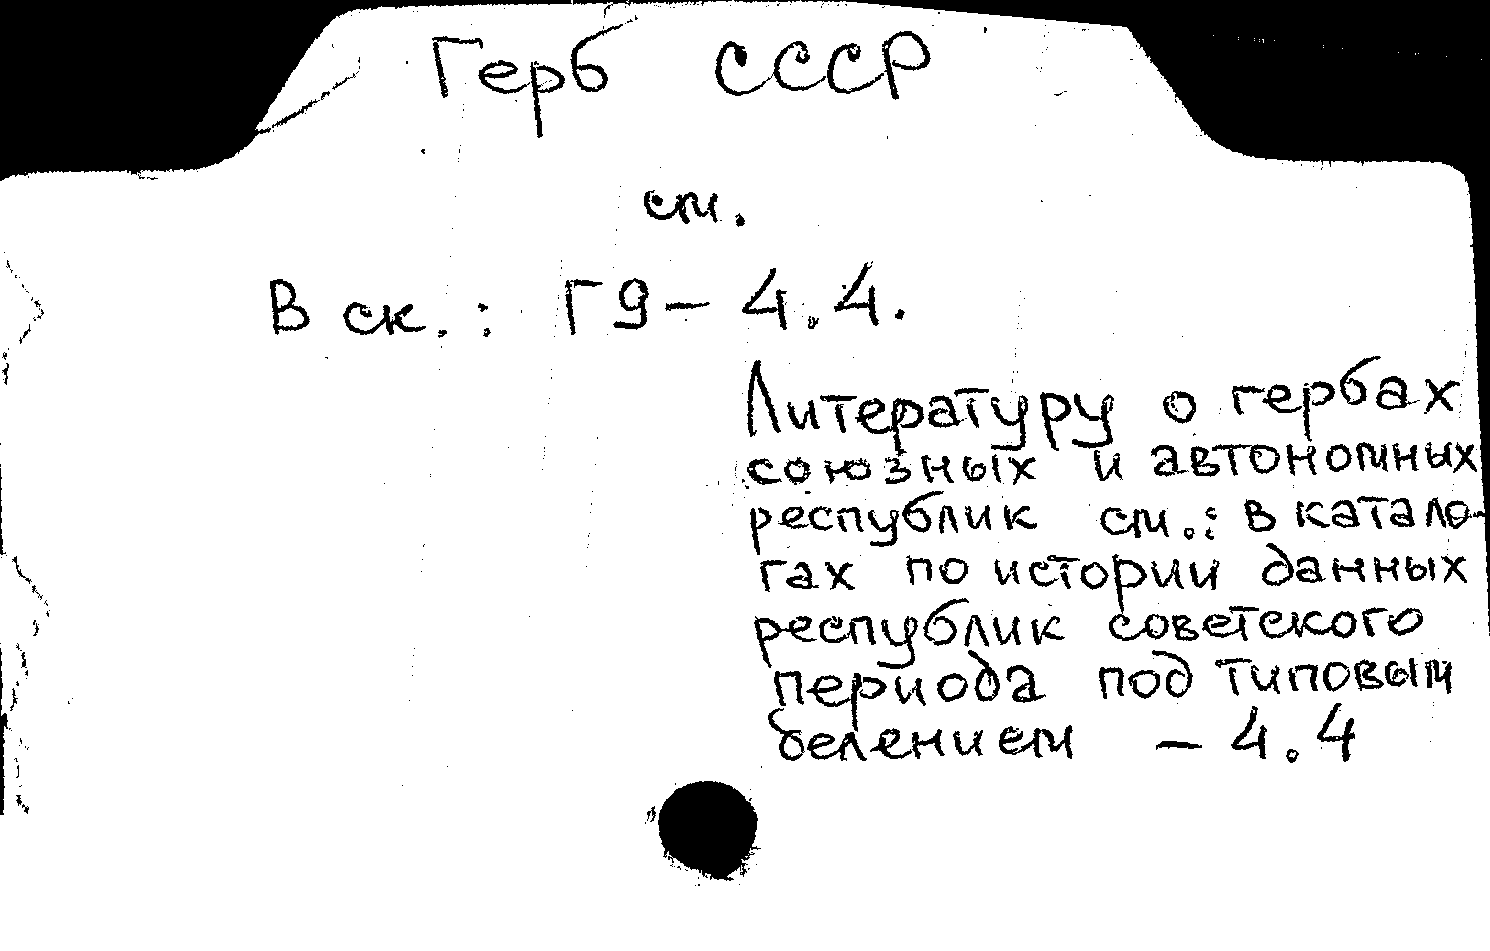 Герб СССР
см.
В ск.: Г9 – 4.4.
Литературу о гербах
союзных и автономных
республик см.: в катало-
гах по истории данных
республик советского
периода под типовым
делением – 4.4